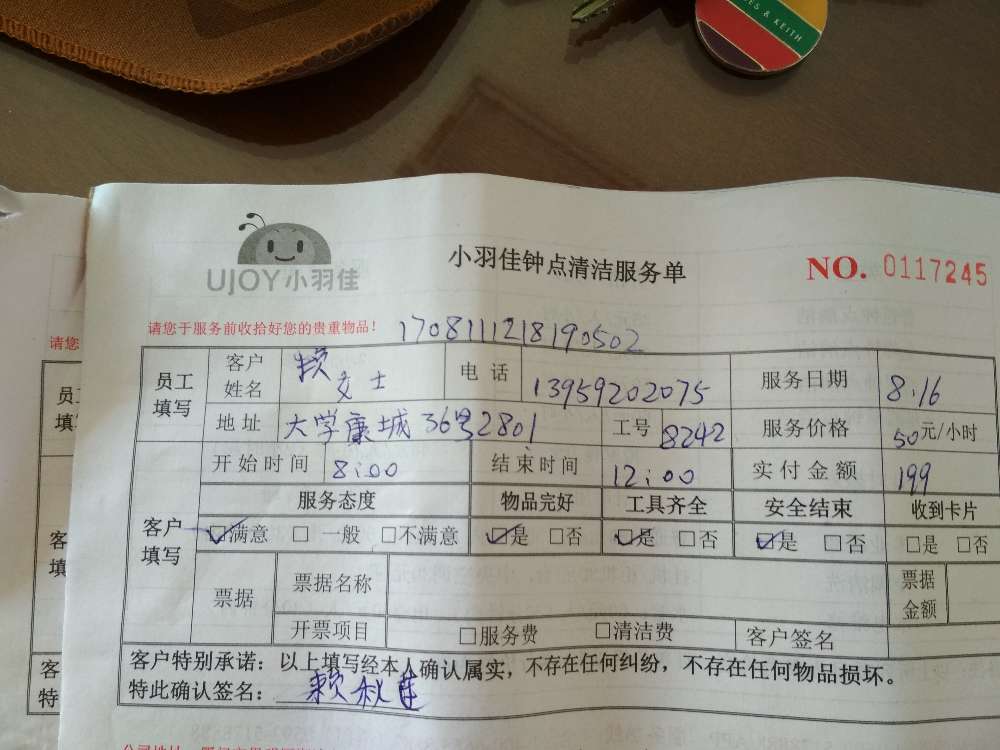 ES & KEITH
UJOY小羽佳
小羽佳钟点清洁服务单
NO. 0117245
请您于服务前收拾好您的贵重物品!
请您
1708111218190502
员工填写
客户姓名
女士
电话
13959202075
服务日期
8:16
地址
大学康城36号2801
工号
8242
服务价格
50元/小时
开始时间
8:00
结束时间
12:00
实付金额
199
客户填写
服务态度
物品完好
工具齐全
安全结束
收到卡片
☑满意 □一般 □不满意
☑是 □否
☑是 □否
☑是 □否
□是 □否
票据
票据名称
票据金额
开票项目
□服务费 □清洁费
客户签名
客户特别承诺:以上填写经本人确认属实,不存在任何纠纷,不存在任何物品损坏。
特此确认签名: